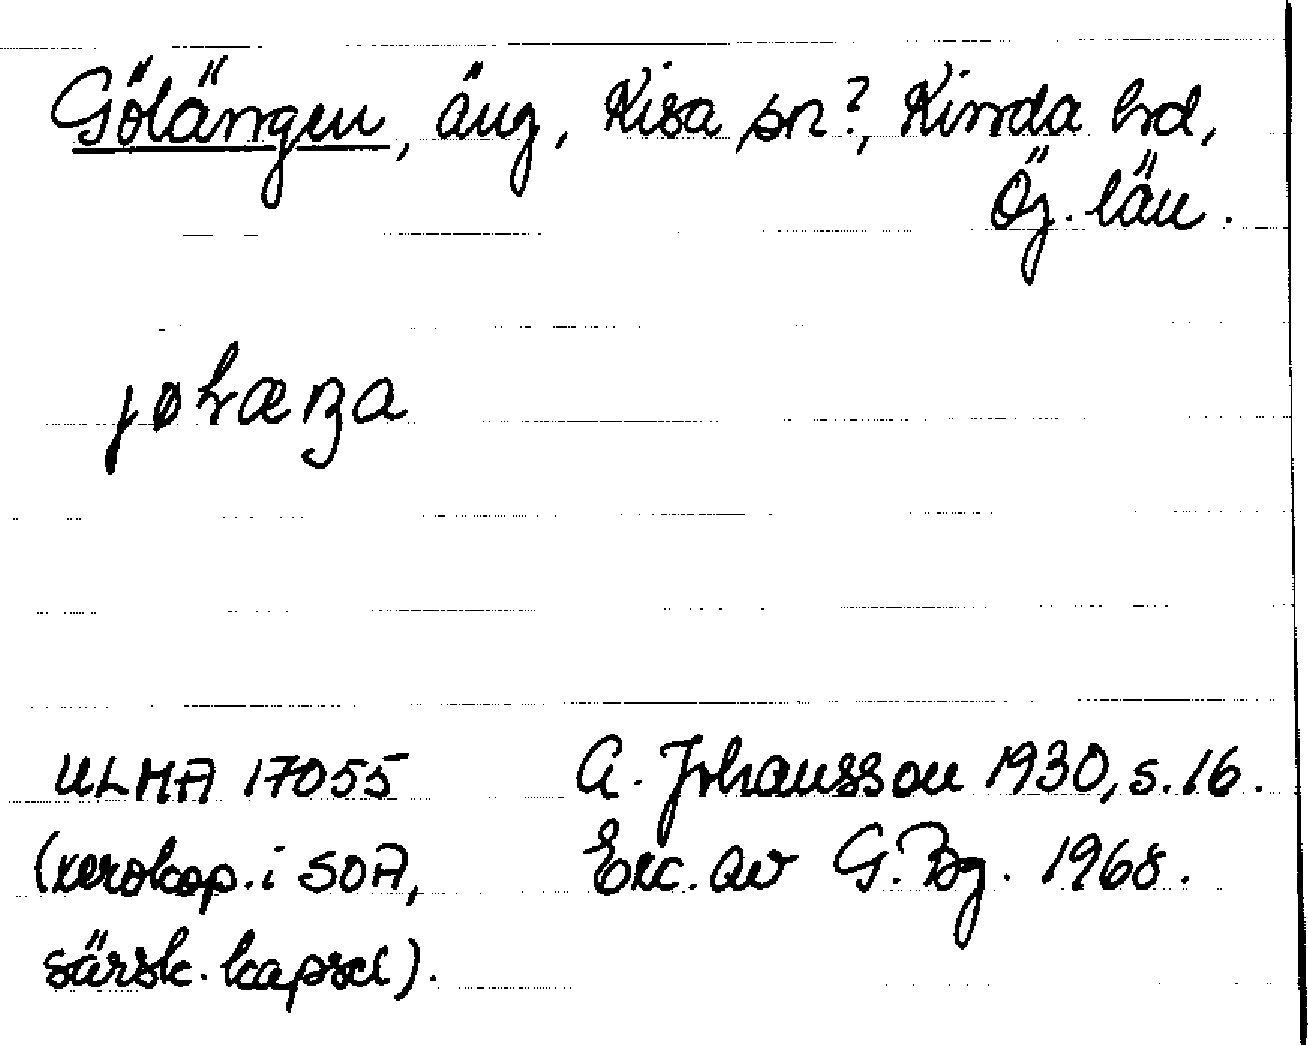 Gölängen, äng, Kisa sn?, Kinda hd,
Ög. län.
jølæŋa
ULMA 17055
(xerokop. i SOA,
särsk. kapsel).
A. Johansson 1930, s. 16.
Exc. av G. Bg. 1968.